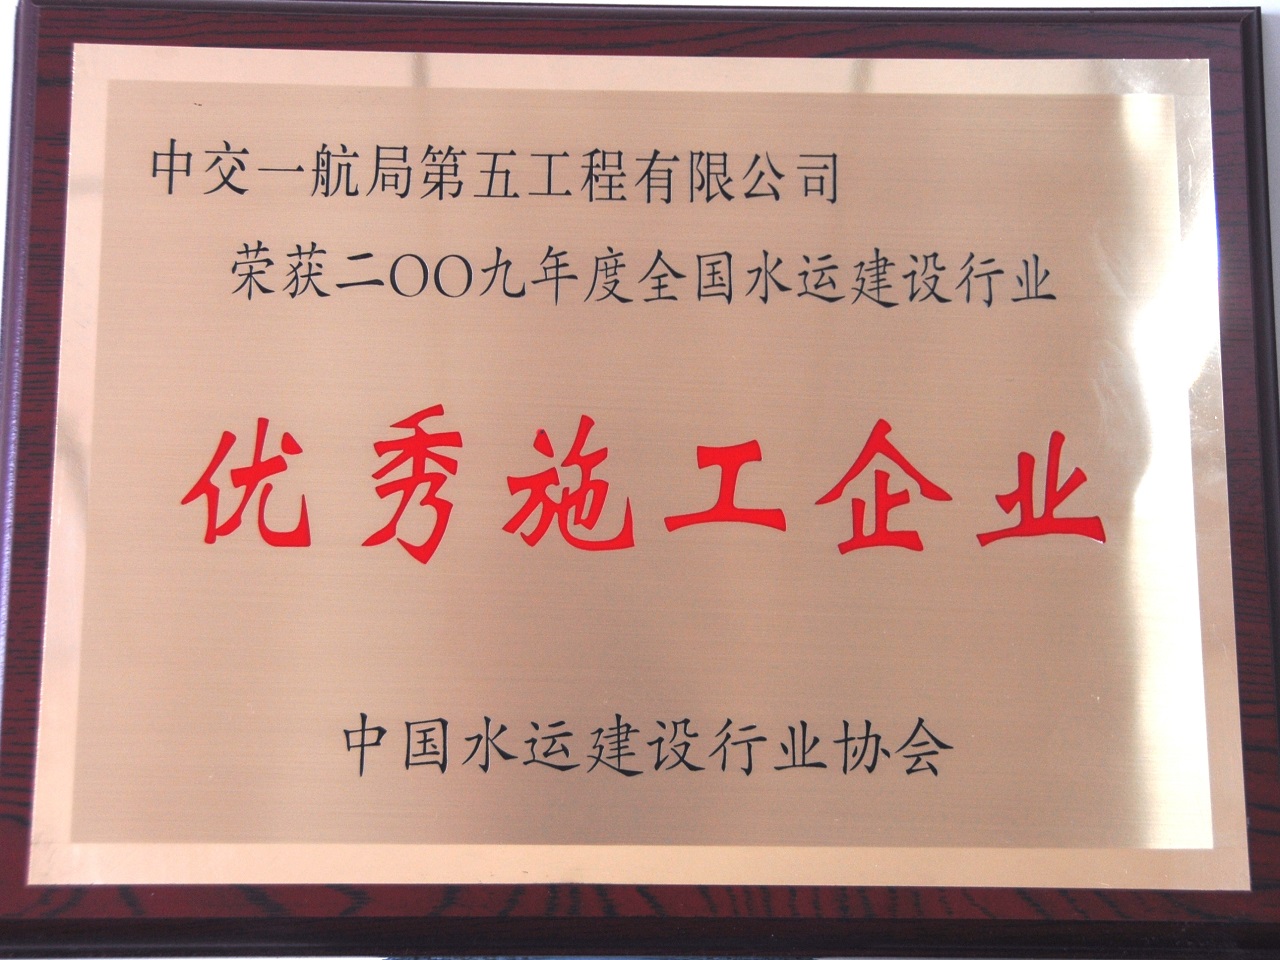 中交一航局第五工程有限公司
荣获二〇〇九年度全国水运建设行业
优秀施工企业
中国水运建设行业协会